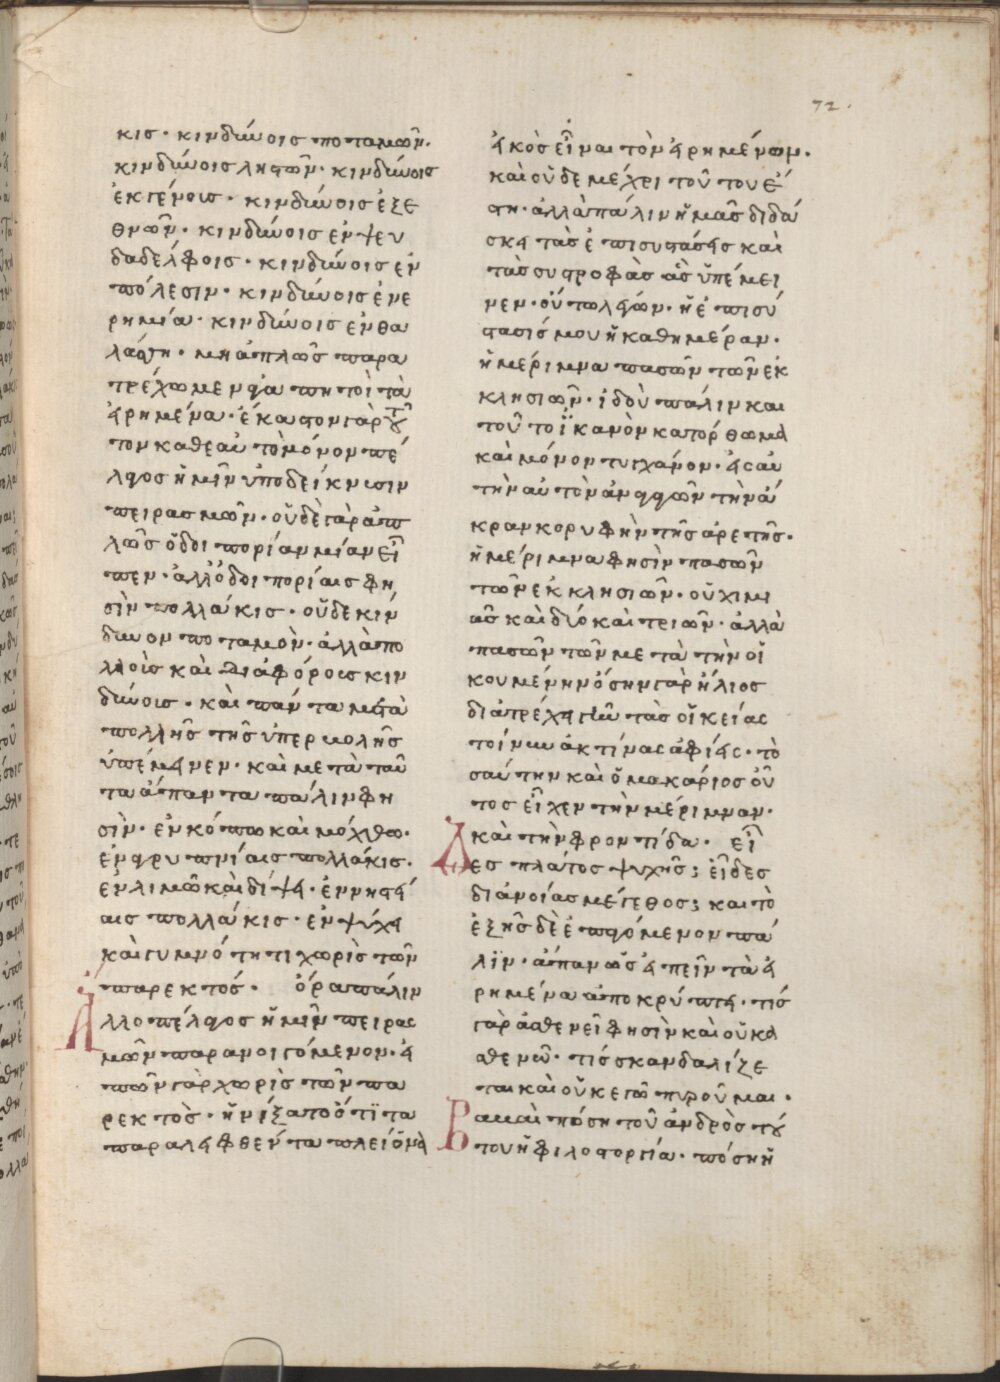 72.
κις· κινδύνοις ποταμῶν·
κινδύνοις ληστῶν· κινδύνοις
ἐκ γένους· κινδύνοις ἐξ ἐ
θνῶν· κινδύνοις ἐν ψευ
δαδέλφοις· κινδύνοις ἐν
πόλεσιν· κινδύνοις ἐν ἐ
ρημία· κινδύνοις ἐν θα
λάσση· μὴ ἁπλῶς παρα
τρέχωμεν ἀγαπητοὶ τὰ
εἰρημένα· ἕκαστον γὰρ του
των καθεαυτὸ μόνον πέ
λαγος ἡμῖν ὑποδείκνυσιν
πειρασμῶν· οὐδὲ γὰρ ἁπ
λῶς ὁδοιπορίαν μίαν εἶ
πεν· ἀλλ' ὁδοιπορίαις φη
σὶν πολλάκις· οὐδὲ κίν
δυνον ποταμὸν· ἀλλὰ πο
λλοῖς καὶ διαφόροις κιν
δύνοις· καὶ πάντα μετὰ
πολλῆς τῆς ὑπερβολῆς
ὑπέμεινεν· καὶ μετὰ ταῦ
τα ἅπαντα πάλιν φη
σὶν· ἐν κόπω καὶ μόχθω·
ἐν ἀγρυπνίαις πολλάκις·
ἐν λιμῶ καὶ δίψει· ἐν νηστεί
αις πολλάκις· ἐν ψύχει
καὶ γυμνότητι χωρὶς τῶν
παρεκτός· ὅρα πάλιν
ἄλλο πέλαγος ἡμῖν πειρασ
μῶν παρανοιγόμενον· εἰ
πὼν γὰρ χωρὶς τῶν πα
ρεκτὸς· ἠνίξατο ὅτι τὰ
παραλειφθέντα πλείονα
εἰκὸς εἶναι τὸν εἰρημένων·
καὶ οὐδὲ μέχρι τοῦ του ἔ
στη· ἀλλὰ πάλιν ἡμᾶς διδά
σκει τὰς ἐπισυστάσεις καὶ
τὰς συστροφὰς ἃς ὑπέμει
νεν· οὕτω λέγων· ἡ ἐπισύ
στασίς μου ἡ καθημέραν·
ἡ μέριμνα πασῶν τῶν ἐκ
κλησιῶν· ἰδοὺ πάλιν καὶ
τοῦ το ἱκανὸν κατόρθωμα
καὶ μόνον τυγχάνον· εἰς αὐ
τὴν αὐτὸν ἀναγαγεῖν τὴν ἄ
κραν κορυφὴν τῆς ἀρετῆς·
ἡ μέριμνα φησὶν πασῶν
τῶν ἐκκλησιῶν· οὐχὶ μι
ᾶς καὶ δύο καὶ τριῶν· ἀλλὰ
πασῶν τῶν μετὰ τὴν οἰ
κουμένην ὅσην γὰρ ἥλιος
διατρέχει τὰς οἰκείας
τοίνυν ἀκτίνας ἀφίεις· το
σαύτην καὶ ὁ μακάριος οὗ
τος εἶχεν τὴν μέριμναν·
καὶ τὴν φροντίδα· εἶ
δες πλάτος ψυχῆς; εἶδες
διανοίας μέγεθος; καὶ τὸ
ἑξῆς δὲ ἑπόμενον πά
λιν· ἅπαν ὡς εἰπεῖν τὰ εἰ
ρημένα ἀποκρύπτει· τίς
γὰρ ἀσθενεῖ φησὶν καὶ οὐκ ἀ
σθενῶ· τίς σκανδαλίζε
ται καὶ οὐκ ἐγὼ πυροῦμαι·
Βαβαὶ πόση τοῦ ἀνδρὸς τού
του ἡ φιλοστοργία· πόση ἡ